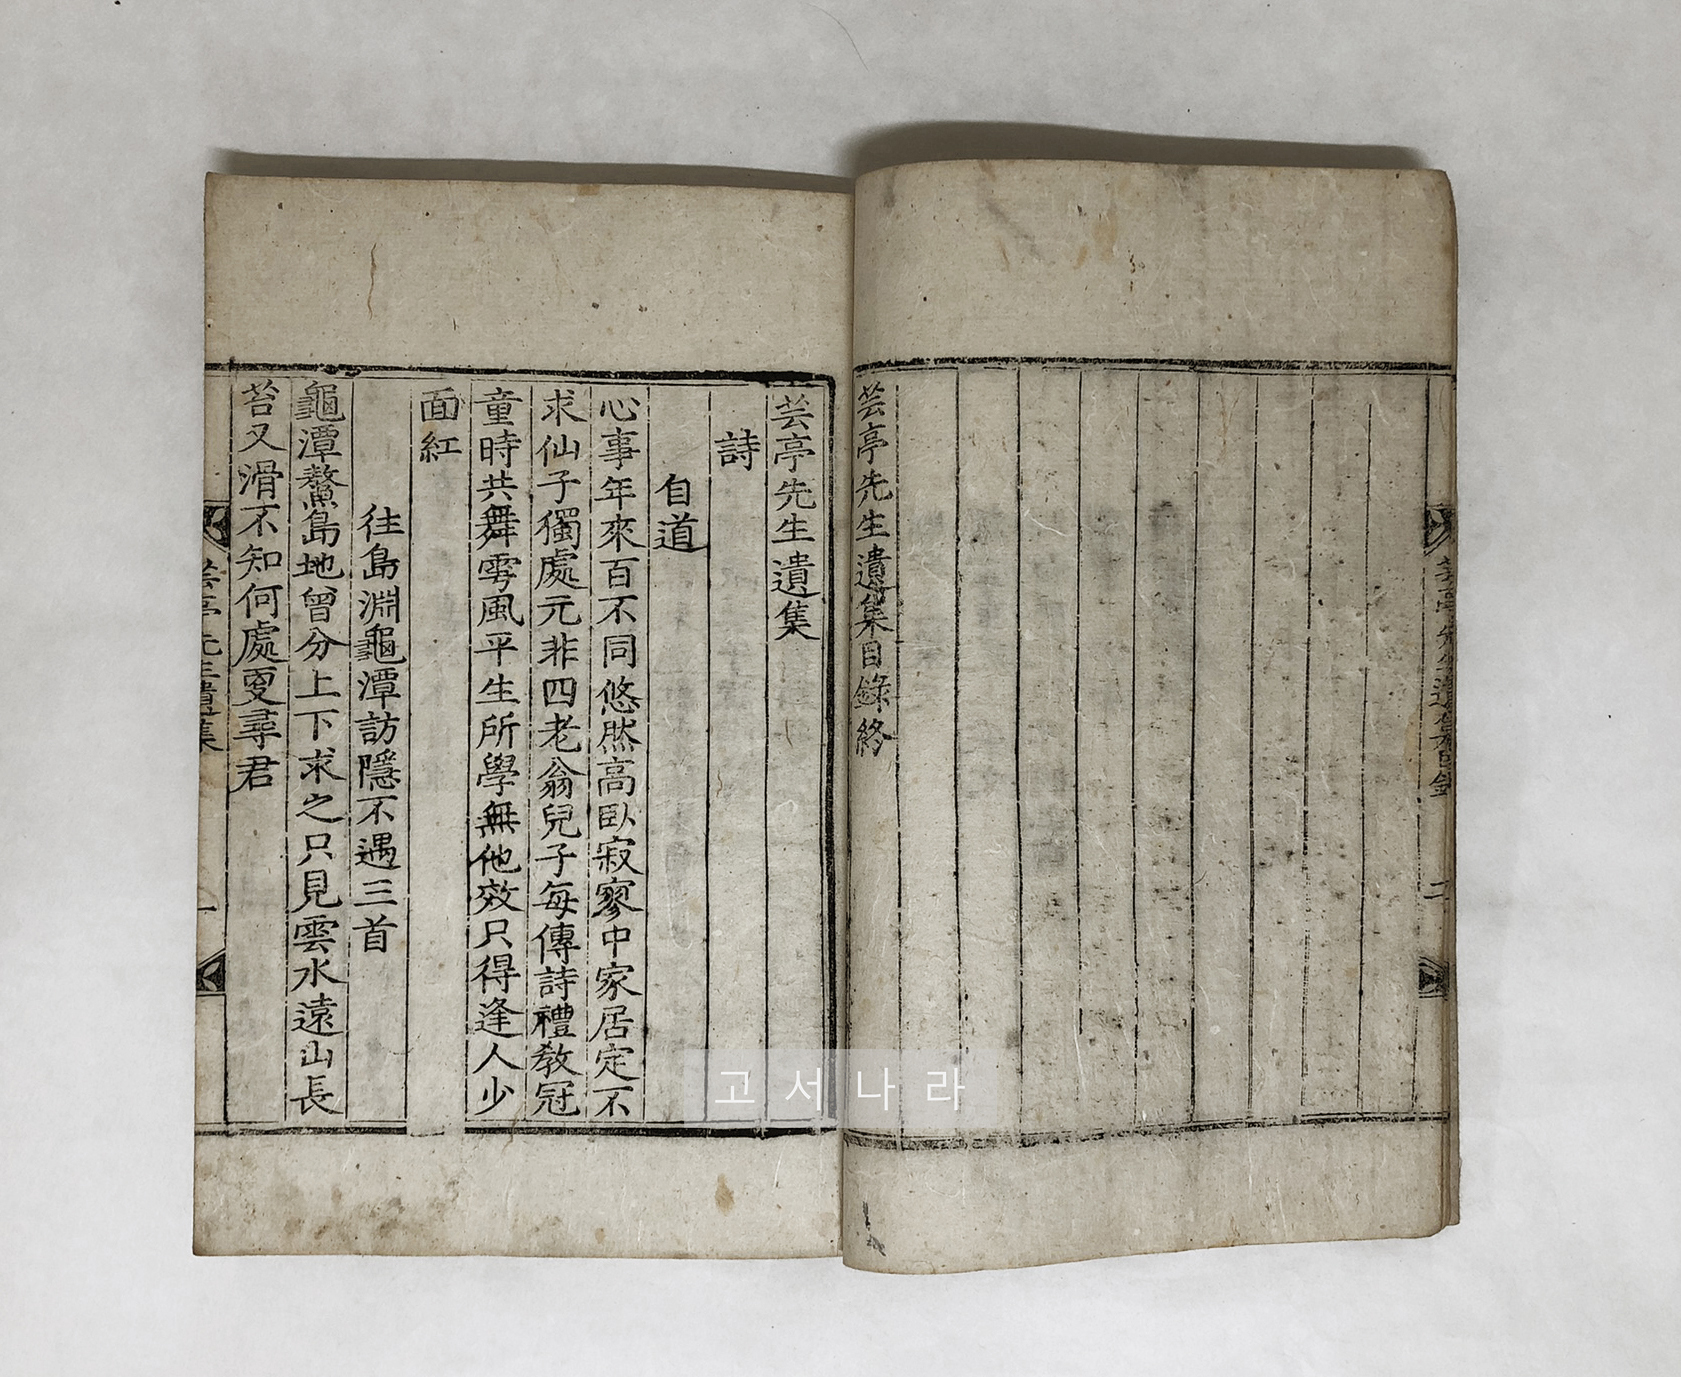 芸亭先生遺集目錄
二
芸亭先生遺集目錄終
芸亭先生遺集
詩
自道
心事年來百不同悠然高臥寂寥中家居定不
求仙子獨處元非四老翁兒子每傳詩禮教冠
童時共舞雩風平生所學無他效只得逢人少
面紅
往島淵龜潭訪隱不遇三首
龜潭鰲島地曾分上下求之只見雲水遠山長
苔又滑不知何處更尋君
芸亭先生遺集
一
고서나라